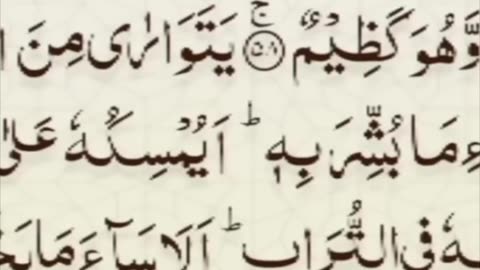 وَّهُوَ كَظِيْمٌ ۚ﴿۵۸﴾ يَتَوَارٰى مِنَ ا
ءِ مَا بُشِّرَ بِهٖ ؕ اَيُمْسِكُهٗ عَلٰى
هٗ فِى التُّرَابِ ؕ اَلَا سَآءَ مَا يَحْ